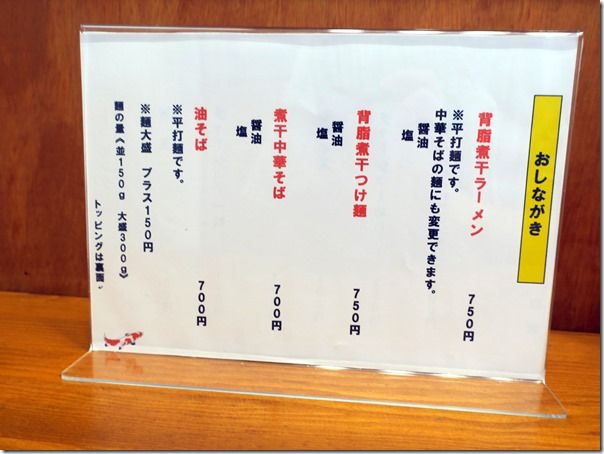 おしながき
背脂煮干ラーメン　750円
※平打麺です。
中華そばの麺にも変更できます。
醤油
塩
背脂煮干つけ麺　750円
醤油
塩
煮干中華そば　700円
醤油
塩
油そば　700円
※平打麺です。
※麺大盛　プラス150円
麺の量《並150g　大盛300g》
トッピングは裏面